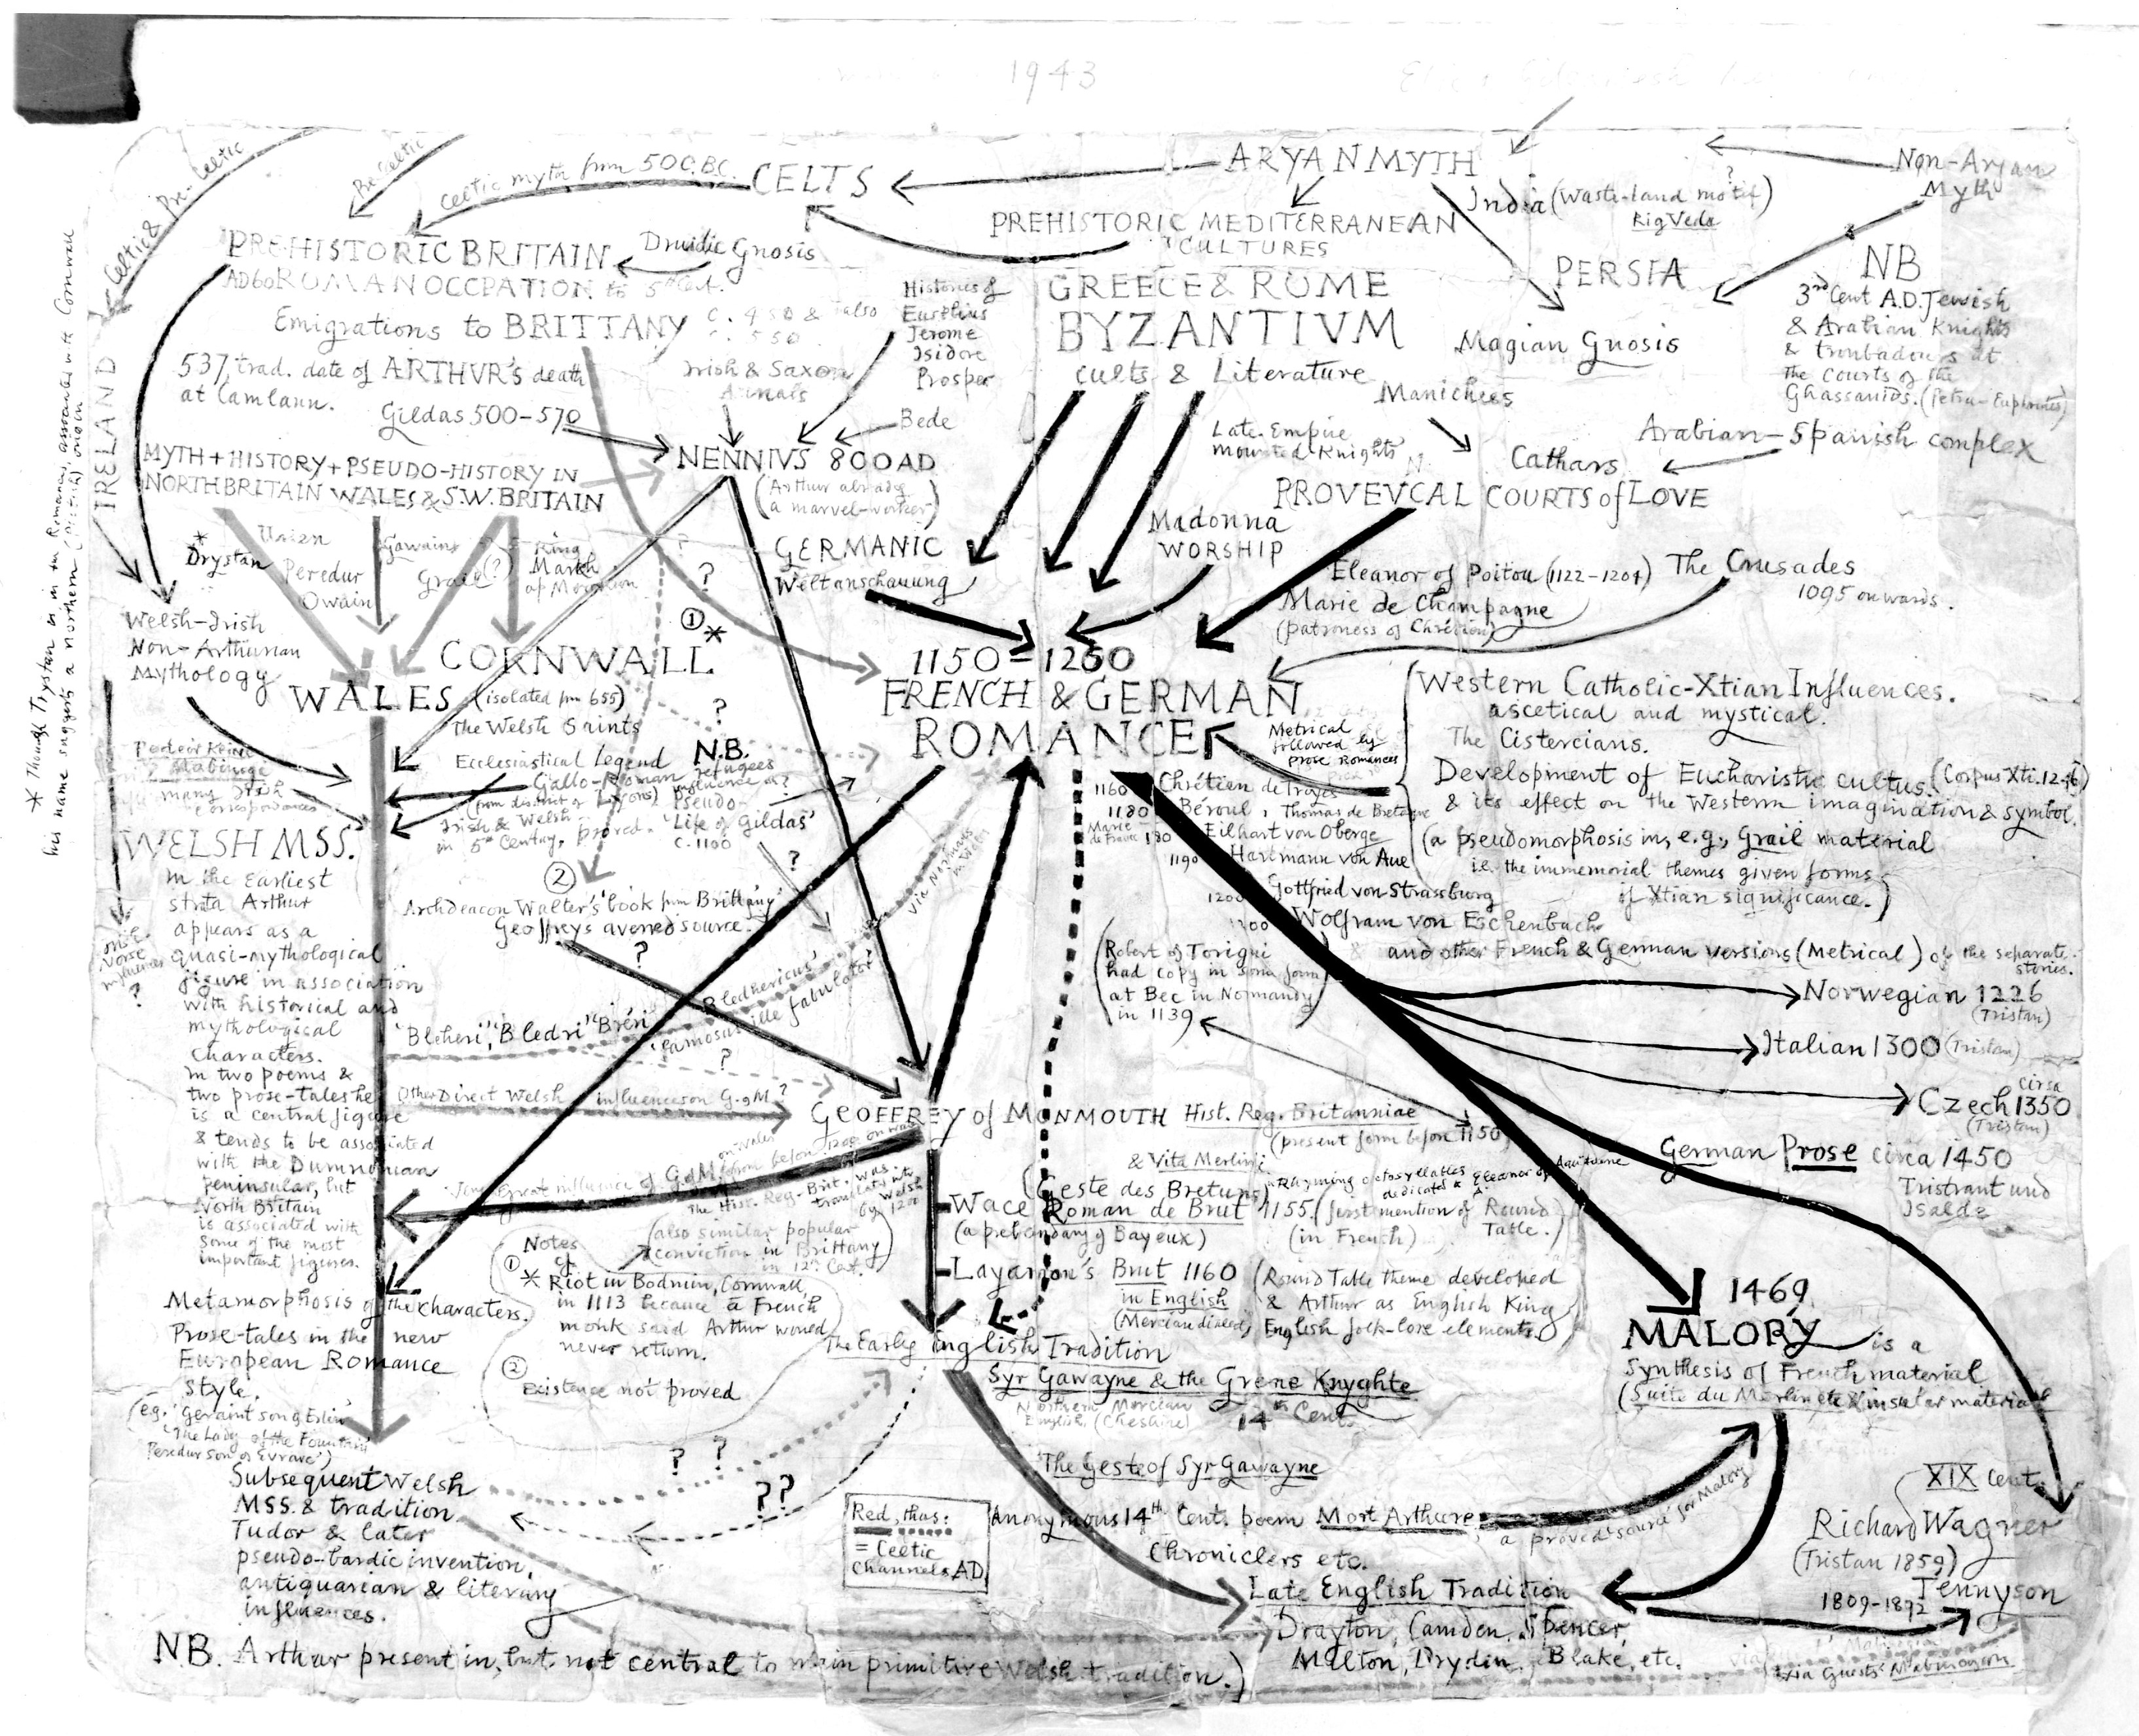 1943
ARYAN MYTH
Non-Aryan
Myth
Celtic & Pre-Celtic
Pre-Celtic
Celtic myth from 500 B.C.
CELTS
India (Waste-land motif)
?
Rig Veda
PREHISTORIC MEDITERRANEAN
CULTURES
PREHISTORIC BRITAIN
Druidic Gnosis
AD 60 ROMAN OCCPATION to 5th Cent.
Emigrations to BRITTANY c. 450 & also
c. 550.
Histories of
Eusebius
Jerome
Isidore
Prosper
GREECE & ROME
BYZANTIVM
cults & Literature
PERSIA
Magian Gnosis
Manichees
NB
3rd Cent A.D. Jewish
& Arabian Knights
& troubadours at
The Courts of the
Ghassanids. (Petra-Euphrates)
Arabian-Spanish complex
537, trad. date of ARTHVR's death
at Camlann.
Irish & Saxon
Annals
Gildas 500-570
Bede
Late Empire
mounted Knights
Cathars
PROVEVCAL COURTS of LOVE
IRELAND
MYTH + HISTORY + PSEUDO-HISTORY IN
NORTH BRITAIN WALES & S.W. BRITAIN
NENNIVS 800 AD
(Arthur already
a marvel-worker)
* Though Trystan is in the Romances associated with Cornwall
his name suggests a northern (Pictish) origin
*
Drystan
Urien
Peredur
Owain
Gawain
Grail (?)
King
March
ap Meirchion
?
?
① *
GERMANIC
Weltanschauung
Madonna
WORSHIP
Eleanor of Poitou (1122-1204)
Marie de Champagne
(patroness of Chrétien)
The Crusades
1095 onwards.
Welsh-Irish
Non-Arthurian
Mythology
CORNWALL
WALES (isolated from 655)
The Welsh Saints
1150 = 1250
FRENCH & GERMAN
ROMANCE
Metrical
followed by
prose Romances
Western Catholic-Xtian Influences.
ascetical and mystical.
The Cistercians.
Development of Eucharistic cultus. (Corpus Xti. 1246)
& its effect on the Western imagination & symbol.
(a pseudomorphosis in, e.g., Grail material
i.e. the immemorial themes given forms
of Xtian significance.)
Ecclesiastical Legend
Gallo-Roman refugees
(from district of Lyons) influence on?
Irish & Welsh
in 5th Century, proved.
?
N.B.
Pseudo-
'Life of Gildas'
c. 1100
?
1160 Chrétien de Troyes
1180 Béroul, Thomas de Bretagne
Marie de France 180 Eilhart von Oberge
1190 Hartmann von Aue
1200 Gottfried von Strassburg
1200 Wolfram von Eschenbach
& and other French & German versions (Metrical) of the separate
stories.
WELSH MSS.
In the earliest
strata Arthur
appears as a
quasi-mythological
figure in association
with historical and
mythological
characters.
In two poems &
two prose-tales he
is a central figure
& tends to be associated
with the Dumnonian
peninsular, but
North Britain
is associated with
some of the most
important figures.
②
Archdeacon Walter's 'book from Brittany'
Geoffreys averred source.
?
via Normans
in Wales
(Robert of Torigni
had copy in some form
at Bec in Normandy
in 1139)
Norwegian 1226
(Tristan)
Italian 1300 (Tristan)
circa
Czech 1350
(Tristan)
German Prose circa 1450
Tristrant und
Isalde
'Bleheri', 'Bledri' 'Breri'
Bledhericus'
'famosus ille fabulator'
?
Other Direct Welsh influences on G. of M.?
GEOFFREY of MONMOUTH Hist. Reg. Britanniae
(present form before 1150)
& Vita Merlini
(Geste des Bretuns)
"Rhyming octosyllables
dedicated to Eleanor of Aquitaine
Wace Roman de Brut 1155. (first mention of Round
Table.)
(a prebendary of Bayeux)
(in French)
The Hist. Reg. Brit. was
translated into
Welsh
by 1200
(also similar popular
conviction in Brittany
in 12th Cent.)
Layamon's Brut 1160
in English
(Mercian dialect)
(Round Table theme developed
& Arthur as English King
English folk-lore elements.)
Notes
of
① * Riot in Bodmin, Cornwall,
in 1113 because a French
monk said Arthur would
never return.
②
Existence not proved
Metamorphosis of the characters.
Prose-tales in the new
European Romance
style.
(e.g. 'Geraint son of Erbin'
'The Lady of the Fountain'
Peredur son of Evrawc')
The Early English Tradition
Syr Gawayne & the Grene Knyghte
Northern Mercian
English. (Cheshire)
14th Cent.
1469
MALORY is a
Synthesis of French material
(Suite du Merlin etc & insular material
'The Geste of Syr Gawayne
Subsequent Welsh
MSS. & tradition
Tudor & later
pseudo-bardic invention,
antiquarian & literary
influences.
?
?
??
Red, thus:
= Celtic
Channels AD
Anonymous 14th Cent. poem Mort Arthure,
a proved 'source' for Malory
Chroniclers etc.
Late English Tradition
Drayton, Camden, Spencer,
Milton, Dryden, Blake, etc.
XIX Cent.
Richard Wagner
(Tristan 1859)
Tennyson
1809-1892
via Guests' Mabinogion
NB. Arthur present in, but not central to main primitive Welsh tradition.)